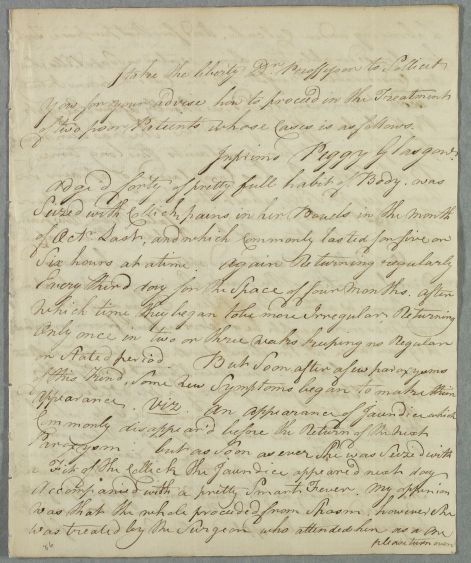 I take the liberty Dr. Proffessor to Sollicit
You for your advise how to proceed in the Treatment
of two poor Patients whose Cases is as follows.
Inprimis Peggy Glasgow.
adge'd forty of pretty full habit of Body. was
Seized with Collick pains in her Bouels in the month
of Octr. Last, and which Commonly lasted for five or
Six hours at a time again Returning regularly
Every third day for the Space of four Months. after
Which time they began to be more Irregular Returning
Only once in two or three weeks keeping no Regular
or Stated period. But Soon after a few paroxysms
of this kind, Some New Symptoms began to make their
appearance. Viz. an appearance of Jaundice which
Commonly disappear'd before the Return of the next
Paroxysm but as Soon as ever She was Seized with
a Fit of the Collick the Jaundice appeared next day
Accompanied with a pretty Smart Fever. My oppinion
was that the whole proceeded from Spasm, however She
was treated by the Surgeon who attended her as a one
please turn over